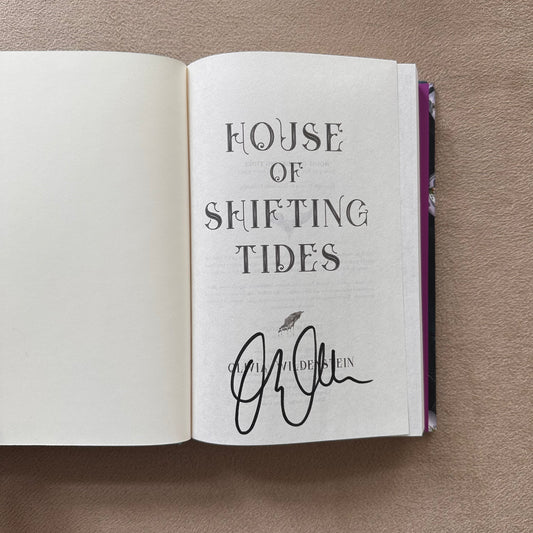 HOUSE
OF
SHIFTING
TIDES
OLIVIA WILDENSTEIN